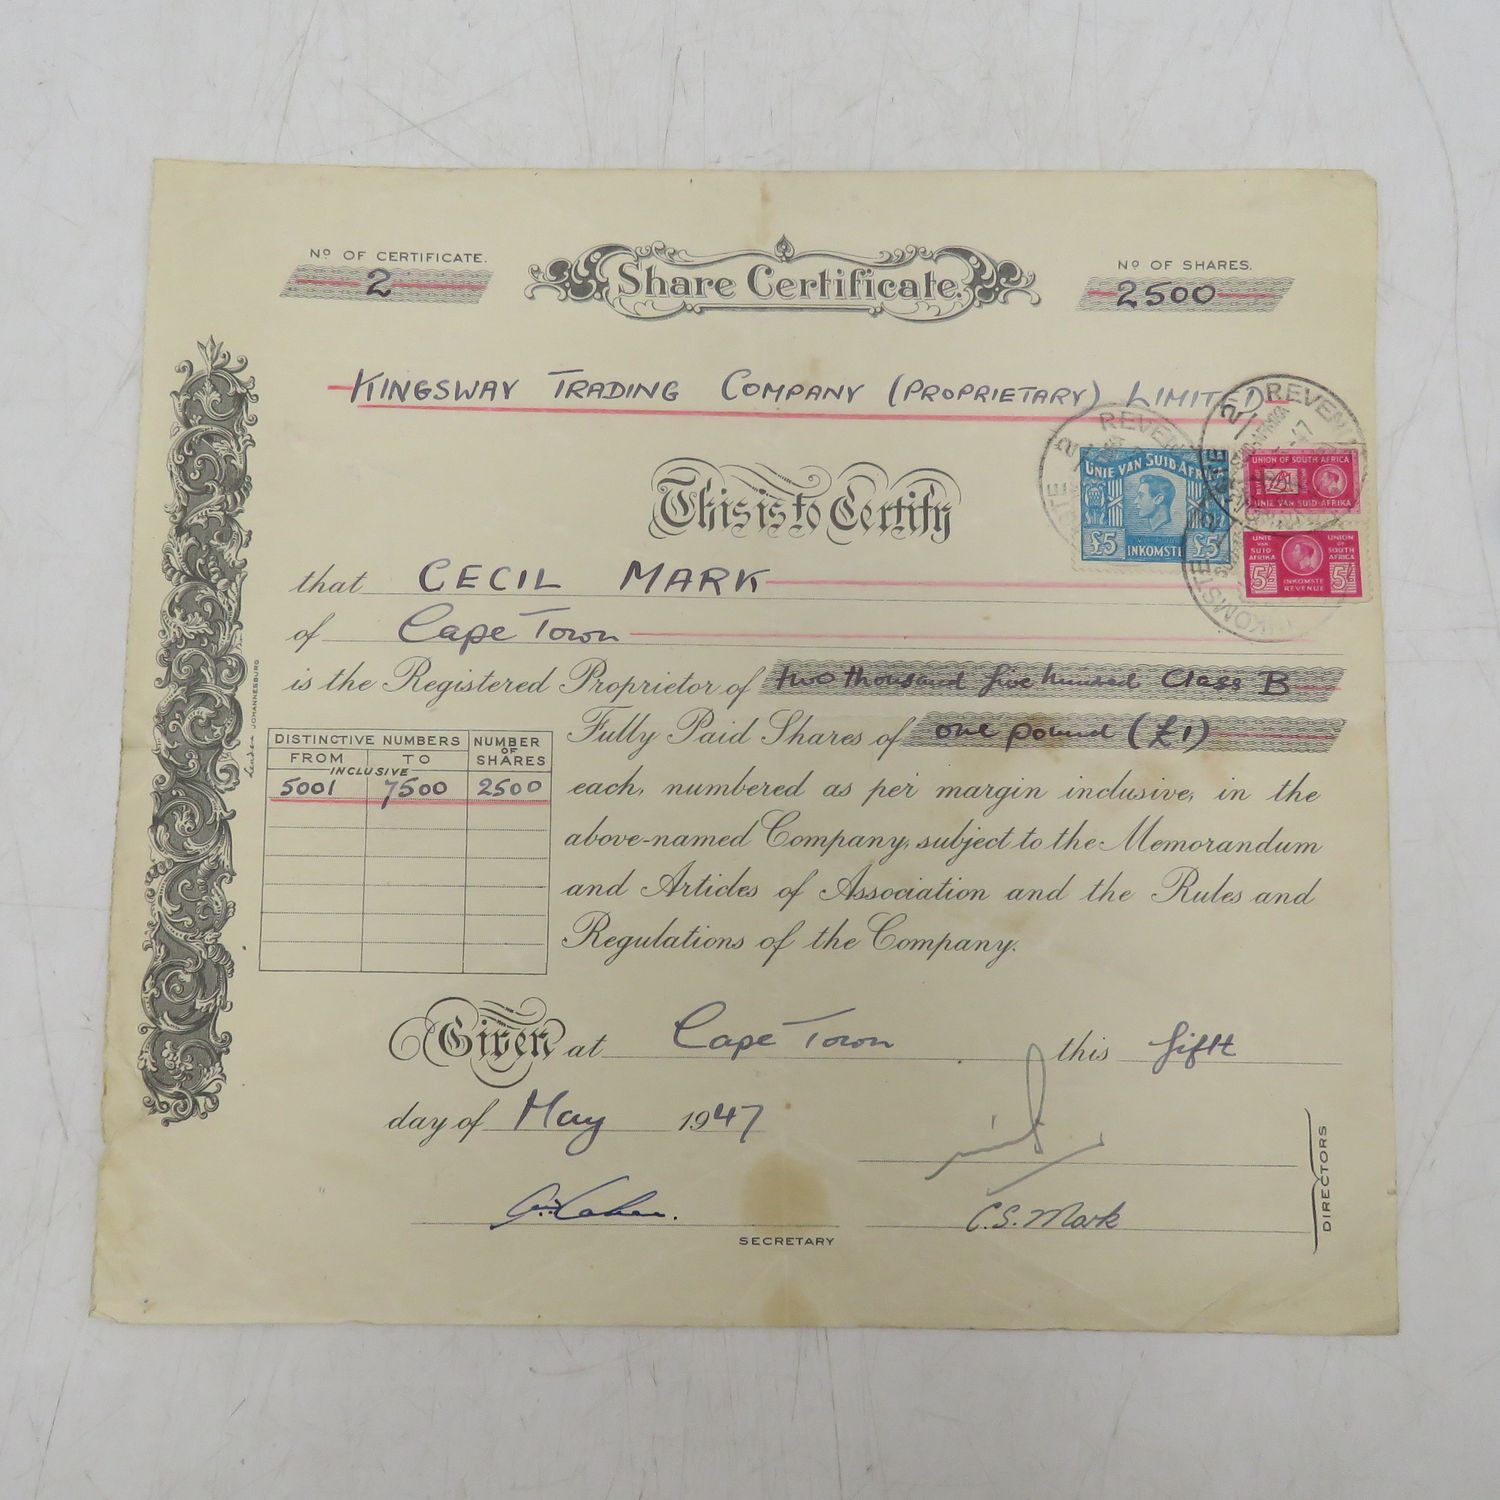 Nº OF CERTIFICATE.
2
Share Certificate.
Nº OF SHARES.
2500
KINGSWAY TRADING COMPANY (PROPRIETARY) LIMITED
This is to Certify
REVENUE
UNIE VAN SUID AFRIKA
£5 INKOMSTE £5
REVENUE
UNION OF SOUTH AFRICA
£1
UNIE VAN SUID-AFRIKA
UNIE VAN SUID AFRIKA
UNION OF SOUTH AFRICA
5/- INKOMSTE REVENUE 5/-
INKOMSTE
that CECIL MARK
of Cape Town
is the Registered Proprietor of two thousand five hundred Class B
Fully Paid Shares of one pound (£1)
each, numbered as per margin inclusive, in the
above-named Company, subject to the Memorandum
and Articles of Association and the Rules and
Regulations of the Company.
DISTINCTIVE NUMBERS
NUMBER OF SHARES
FROM TO
INCLUSIVE
5001 7500 2500
JOHANNESBURG
Given at Cape Town this fifth
day of May 1947
C.S. Mark
SECRETARY
DIRECTORS